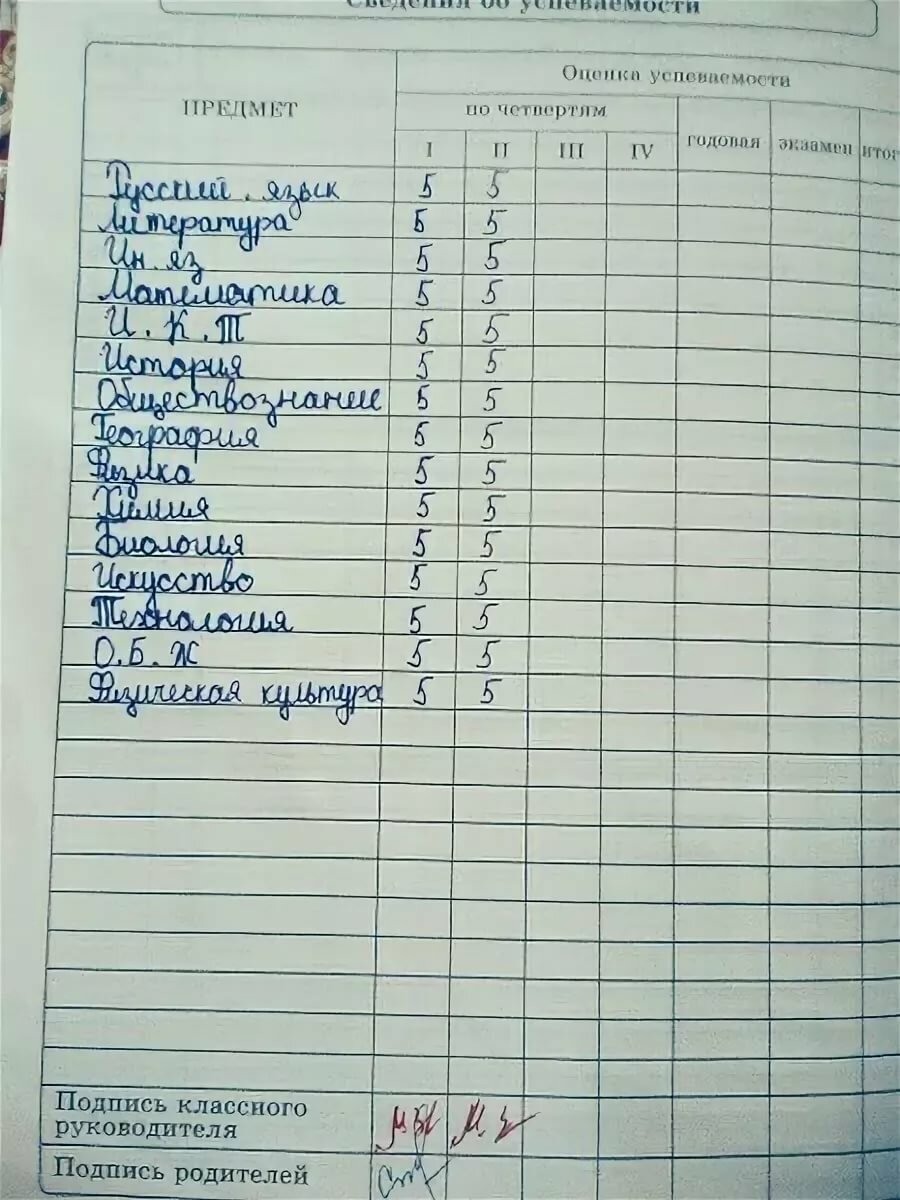 Сведения об успеваемости
ПРЕДМЕТ
Оценка успеваемости
по четвертям
годовая экзамен итог
I II III IV
Русский. язык 5 5
Литература 5 5
Ин. яз 5 5
Математика 5 5
И. К. Т 5 5
История 5 5
Обществознание 5 5
География 5 5
Физика 5 5
Химия 5 5
Биология 5 5
Искусство 5 5
Технология 5 5
О.Б.Ж 5 5
Физическая культура 5 5
Подпись классного
руководителя
Подпись родителей